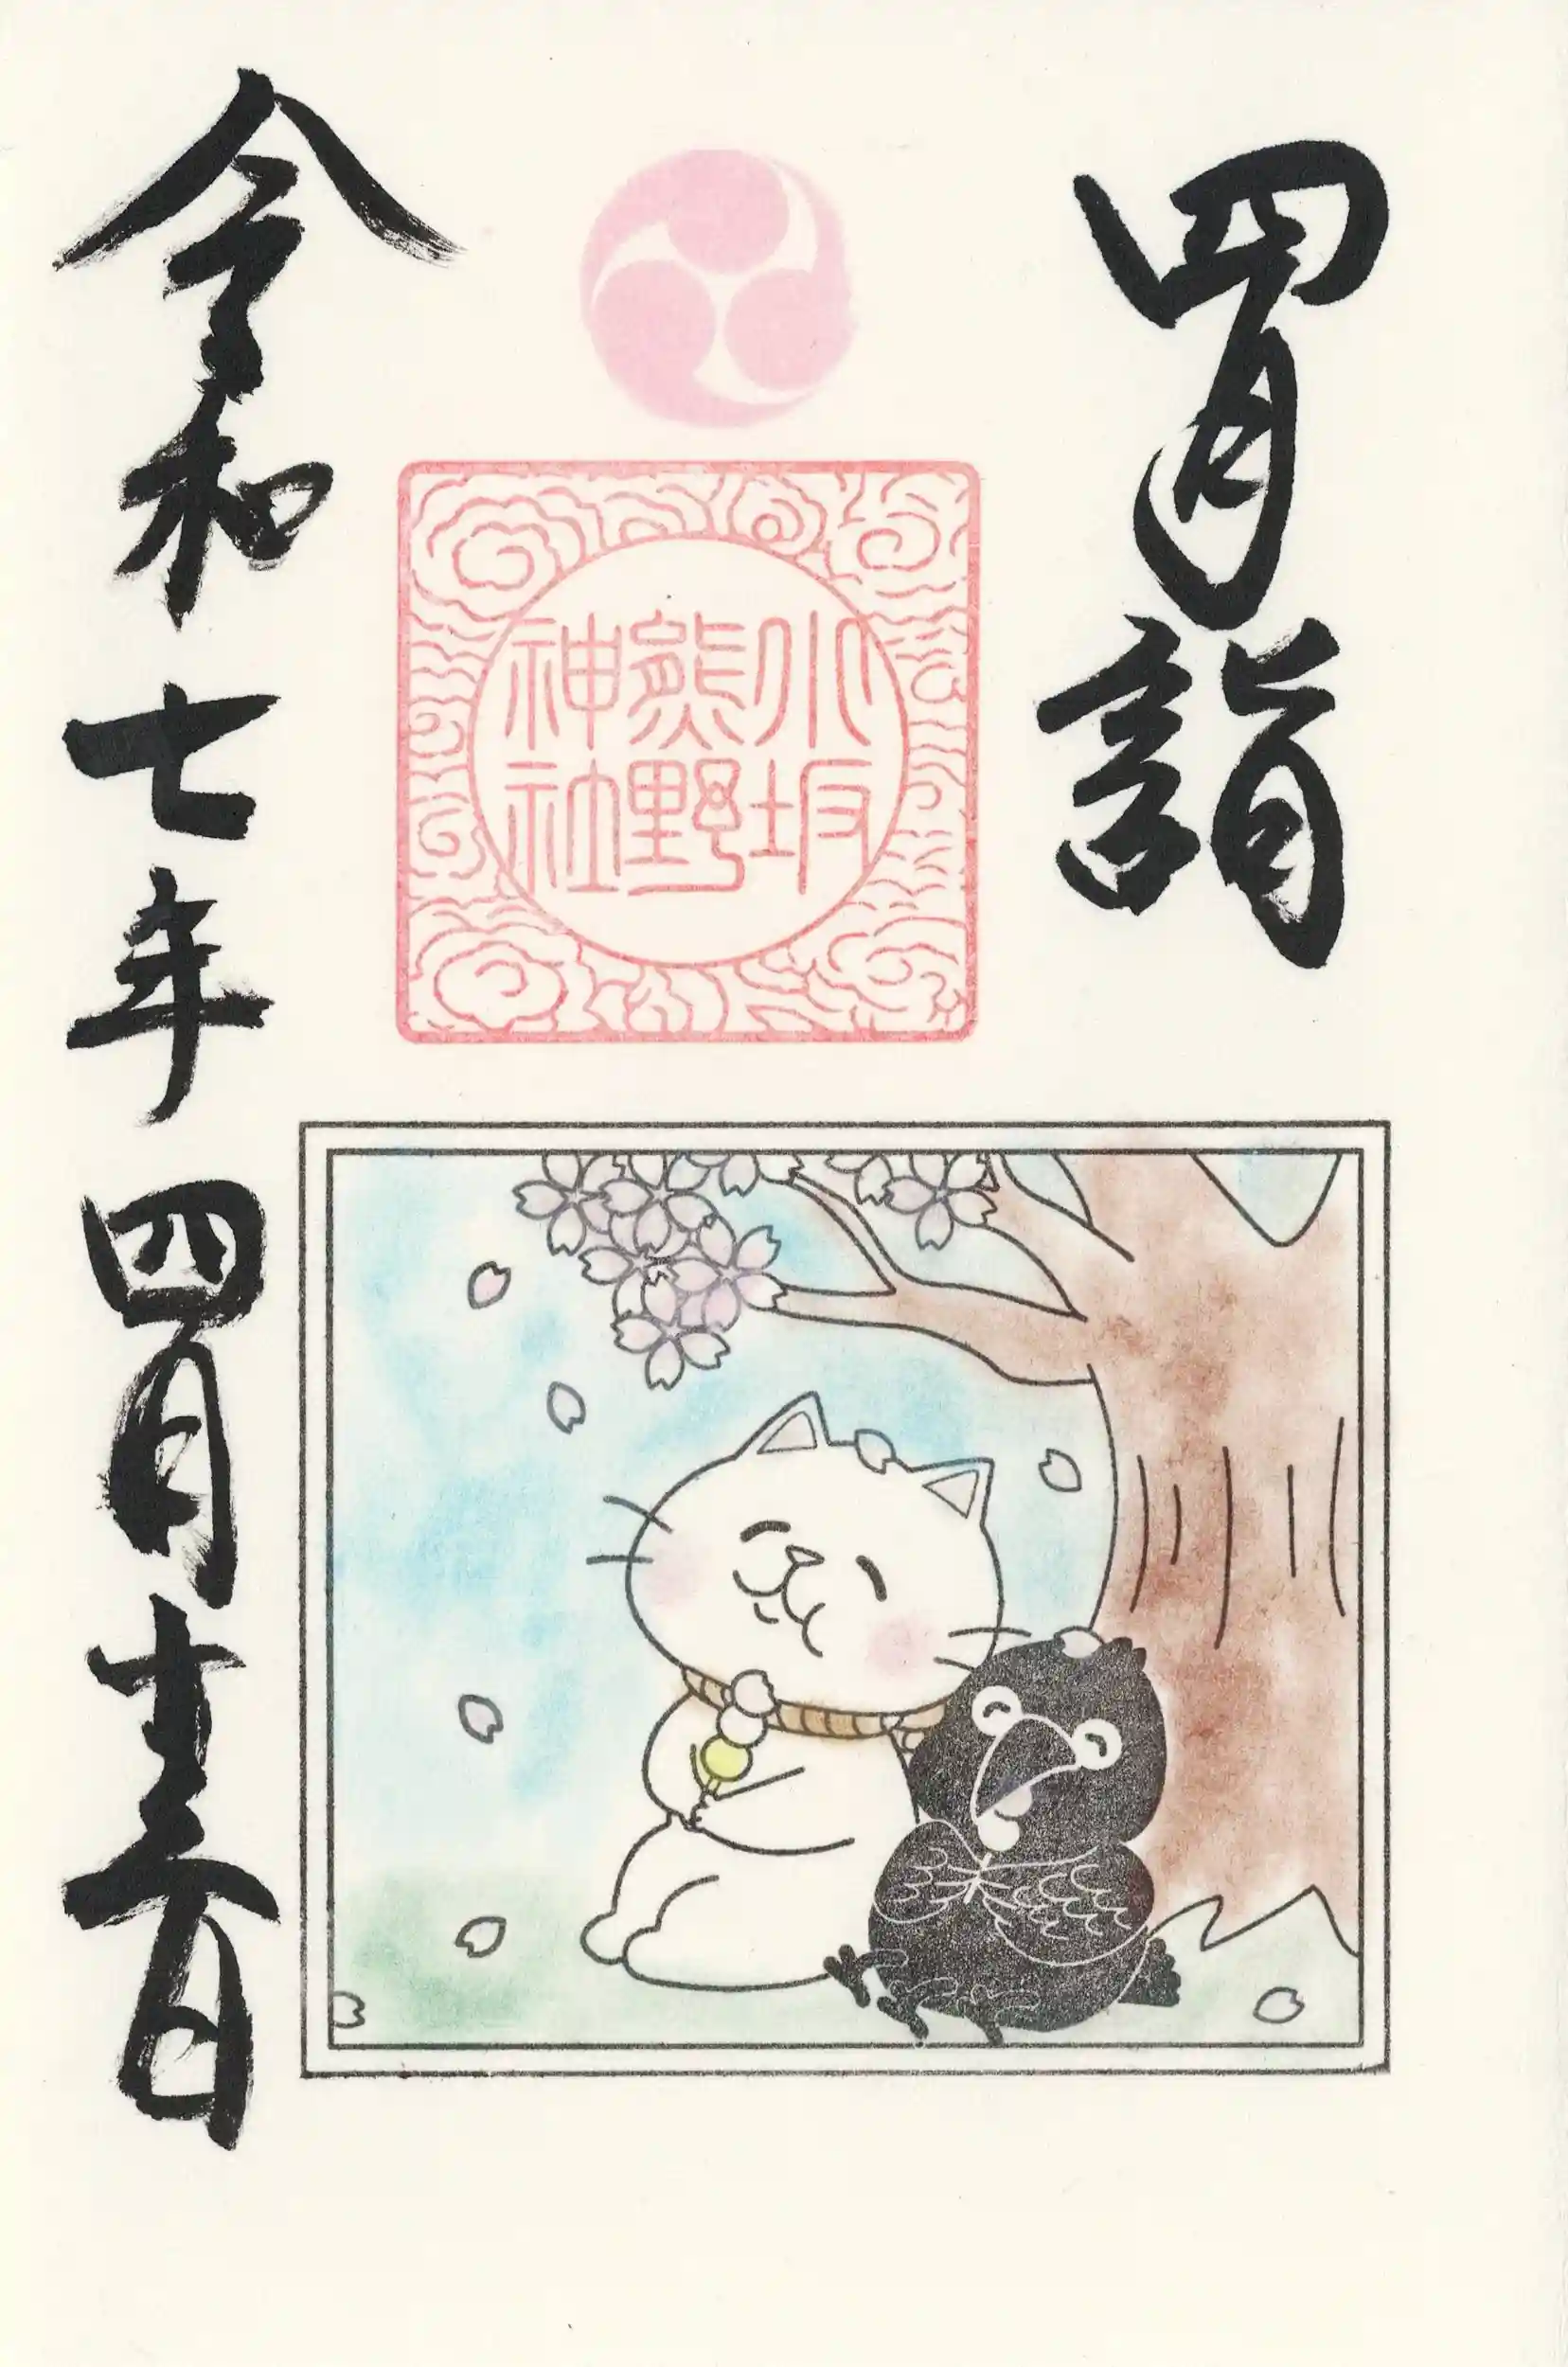 四月詣
小坂
熊野
神社
令和七年四月十三日